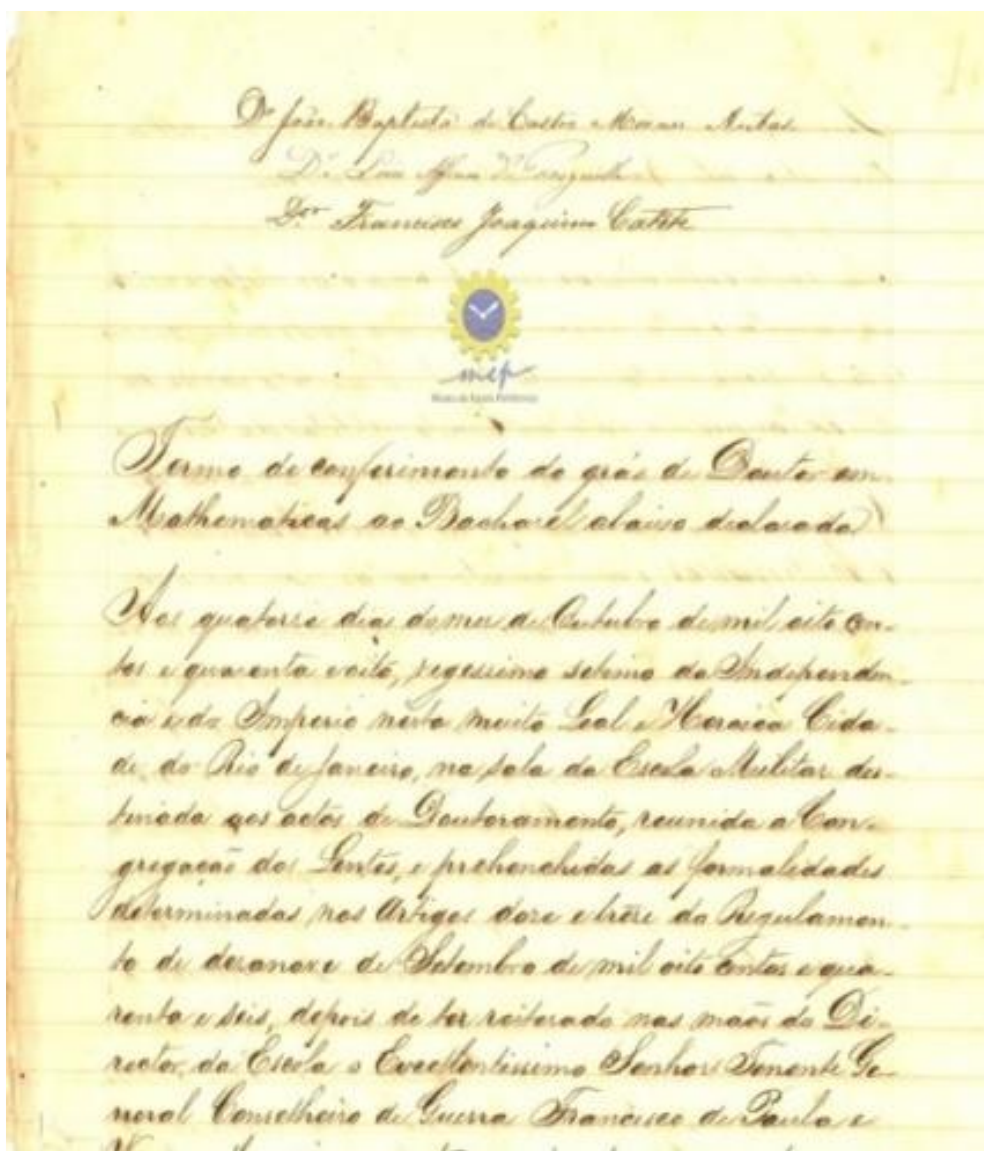 Dr João Baptista de Castro Moraes Antas
Dr
Dor Francisco Joaquim Catête
mep
Museu da Escola Politécnica
Termo de conferimento do gráo de Doutor em
Mathematicas ao Bacharel abaixo declarado
Aos quatorze dias do mez de Outubro de mil oito cen-
tos e quarenta e oito, vegessimo setimo da Independen-
cia e do Imperio nesta muito Leal e Heroica Cida-
de do Rio de Janeiro, na sala da Escola Militar des-
tinada aos actos de Doutoramento, reunida a Con-
gregação dos Lentes, e prehenchidas as formalidades
determinadas nos Artigos doze e treze do Regulamen-
to de dezanove de Setembro de mil oito centos e qua-
renta e seis, depois de ter reiterado nas mãos do Di-
rector da Escola o Excellentissimo Senhor Tenente Ge-
neral Conselheiro de Guerra Francisco de Paula e